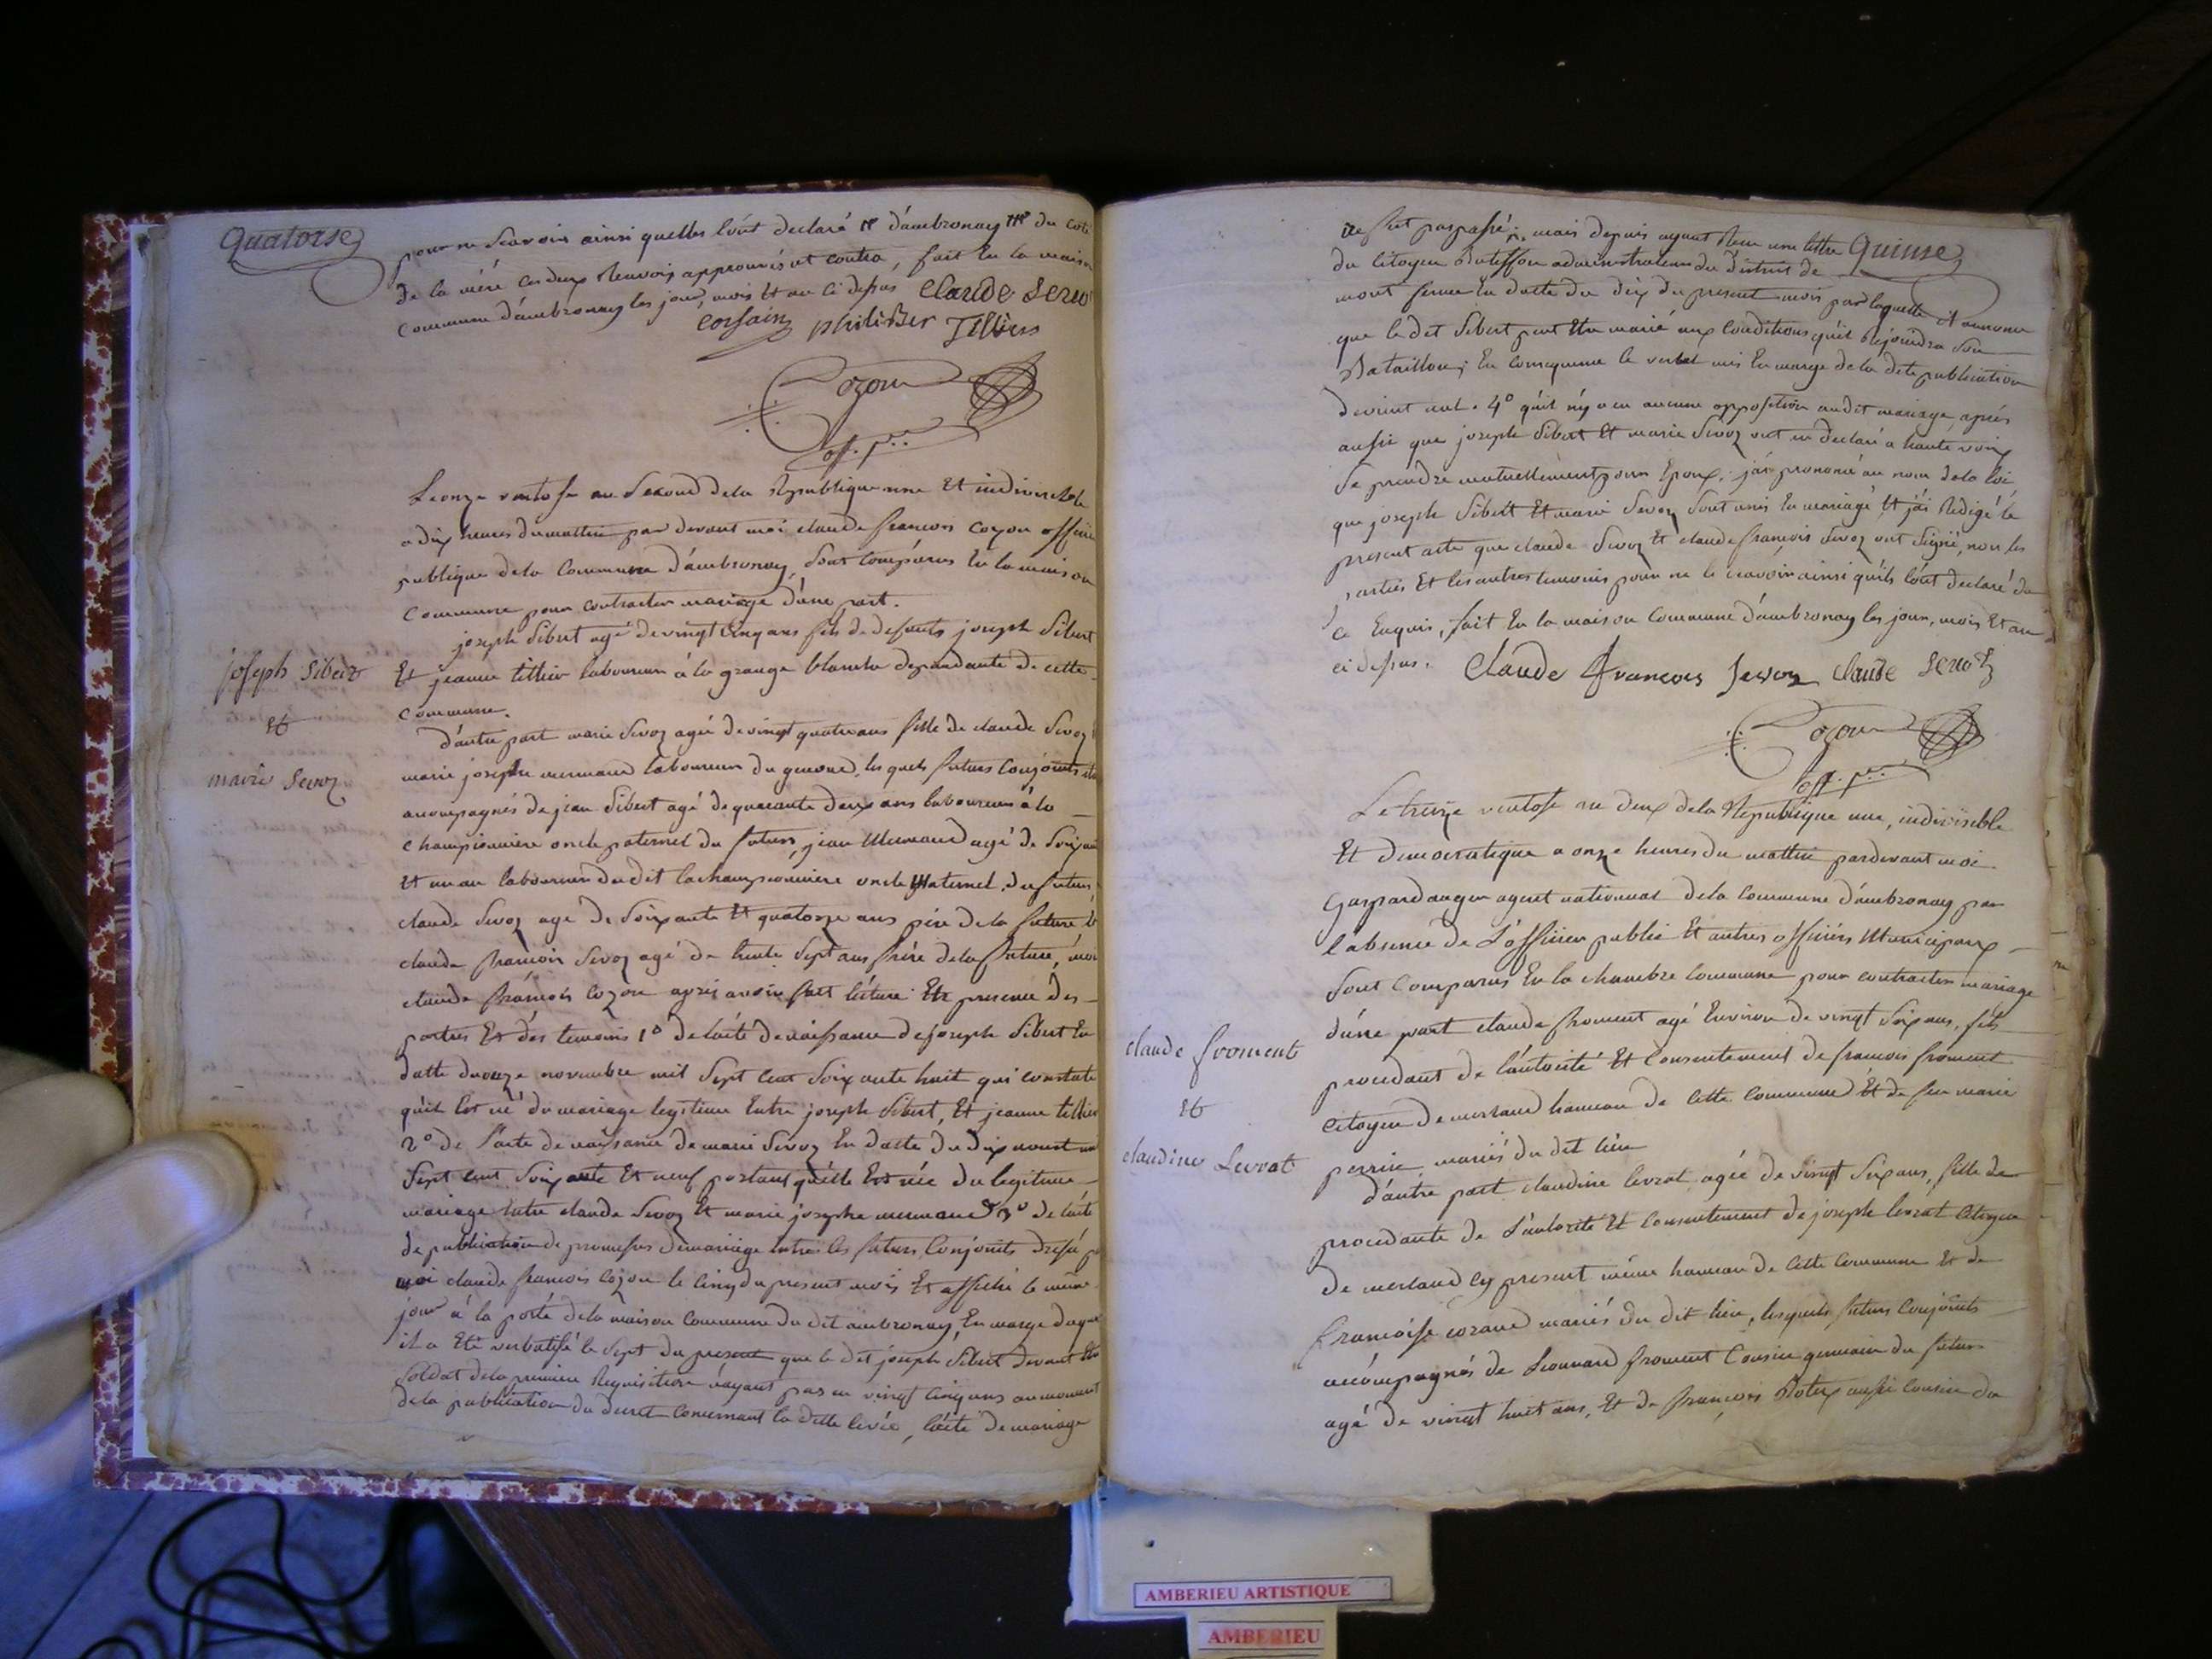 Quatorse
pour ne scavoir ainsi quelles l'ont declaré # d'ambronay ## du coté
de la mére ces deux renvois approuvés et contra, fait en la maison
commune d'ambronay les jour, mois et an ci dessus Claude Servo
corsain philiBer Tilliers
Cozon
off. p.
Le onze ventose an second de la Republique une et indivisible
a dix heures du mattin par devant moi claude françois cozon officier
publique de la Commune d'ambronay, sont comparus en la maison
Commune pour contracter mariage d'une part.
joseph Sibert agé de vingt cinq ans fils de defunts joseph Sibert
joseph Sibert
Et jeanne tillier laboureur à la grange blanche dependante de cette
commune.
et
d'autre part marie Sevoz agée de vingt quatre ans fille de claude Sevoz
marie Sevoz
marie josephe mermand laboureur du genoud, les quels futurs Conjoints
accompagnés de jean Sibert agé de quarante deux ans laboureur à la
championniere oncle paternel du futur, jean Mermand agé de soixante
et un an laboureur du dit lachampionniere oncle Maternel du futur
claude Sevoz agé de soixante et quatorze ans pére de la future et
claude françois Sevoz agé de trente sept ans frére de la future, moi
claude françois cozon aprés avoir fait lecture en presence des
parties Et des temoins 1° de l'acte de naissance de joseph Sibert en
datte du onze novembre mil sept cent soixante huit qui constate
qu'il est né du mariage legitime entre joseph Sibert, Et jeanne tillier
2° de l'acte de naissance de marie Sevoz en datte du dix aoust mil
sept cent soixante Et neuf portant qu'elle Est née du legitime
mariage entre claude Sevoz Et marie josephe mermand 3° de l'acte
de publication de promesses de mariage entre les futurs Conjoints dressé p
moi claude françois Cozon le cinq du present mois Et affiché le même
jour à la porte de la maison commune du dit ambronay, En marge duquel
il a Eté verbalisé le sept du present que le dit joseph Sibert devant etre
soldat de la premiere Requisition n'ayant pas eu vingt cinq ans au moment
de la publication du decret concernant la dette levée, l'acte de mariage
ne fut pas passé; mais depuis ayant reçu une lettre Quinse
du citoyen administrateur du district de
mont ferme En datte du dix du present mois par laquelle il annonce
que le dit Sibert peut Etre marié aux Conditions qu'il Rejoindra son
Bataillon; En consequence le verbal mis En marge de la dite publication
devient nul. 4° qu'il n'y a eu aucune opposition audit mariage, aprés
aussi que joseph Sibert Et marie Sevoz ont eu declaré a haute voix
se prendre mutuellement pour Epoux. j'ai prononcé au nom de la loi
que joseph Sibert Et marie Sevoz sont unis En mariage Et j'ai Redigé le
present acte que claude Sevoz Et claude françois Sevoz ont signé, non les
parties Et les autres temoins pour ne le scavoir ainsi qu'ils l'ont declaré de
ce Enquis, fait En la maison Commune d'ambronay les jour, mois Et an
ci dessus. Claude François Sevoz Claude Servoz
Cozon
off. p.
Le treize ventose an deux de la Republique une, indivisible
Et democratique a onze heures du mattin pardevant moi
Gaspard auger agent national de la Commune d'ambronay par
l'absence de L'officier public Et autres officiers Municipaux
sont Comparus En la chambre Commune pour contracter mariage
d'une part claude froment agé Environ de vingt six ans, fils
claude froment
procedant de l'autorité Et Consentement de françois froment
et
citoyen de merland hameau de cette Commune Et de feu marie
claudine Levrat
perrin mariés du dit lieu
d'autre part claudine levrat, agée de vingt six ans, fille de
procedante de l'autorité Et Consentement de joseph levrat Citoyen
de merland cy present même hameau de cette Commune Et de
françoise mariés du dit lieu, lesquels futurs Conjoints
accompagnés de Leonnard froment Cousin germain du futur
agé de vingt huit ans, Et de françois aussi Cousin du
AMBERIEU ARTISTIQUE
AMBERIEU